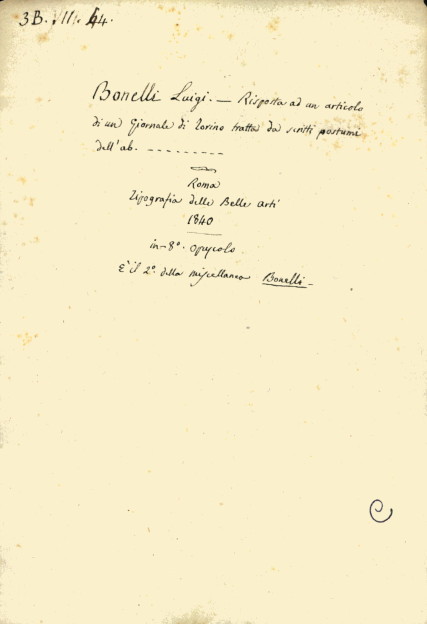 3B. VII. 44.
Bonelli Luigi. — Risposta ad un articolo
di un Giornale di Torino tratta da scritti postumi
dell'ab. - - - - - - - - -
Roma
Tipografia delle Belle Arti
1840
in-8º. opuscolo
È il 2º. della miscellanea Bonelli —